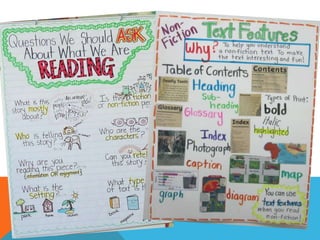 Questions We Should ASK
About What We Are
READING
What is this
story mostly
about?
Is the fiction
or non-fiction
Who is telling
this story?
Who are the
characters?
Why are you
reading this piece?
(information OR enjoyment)
Can you retell
this story?
What is the
Setting?
What type
of text is
Non-
Fiction
Text Features
Why?
To help you understand
a non-fiction text. To make
the text interesting and fun!
Table of Contents
Contents
Heading
Sub-
heading
Types of Print:
bold
Italic
highlighted
Glossary
Glossary
Index
Index
Photograph
caption
map
graph
diagram
You can use
text features
when you read
non-fiction!